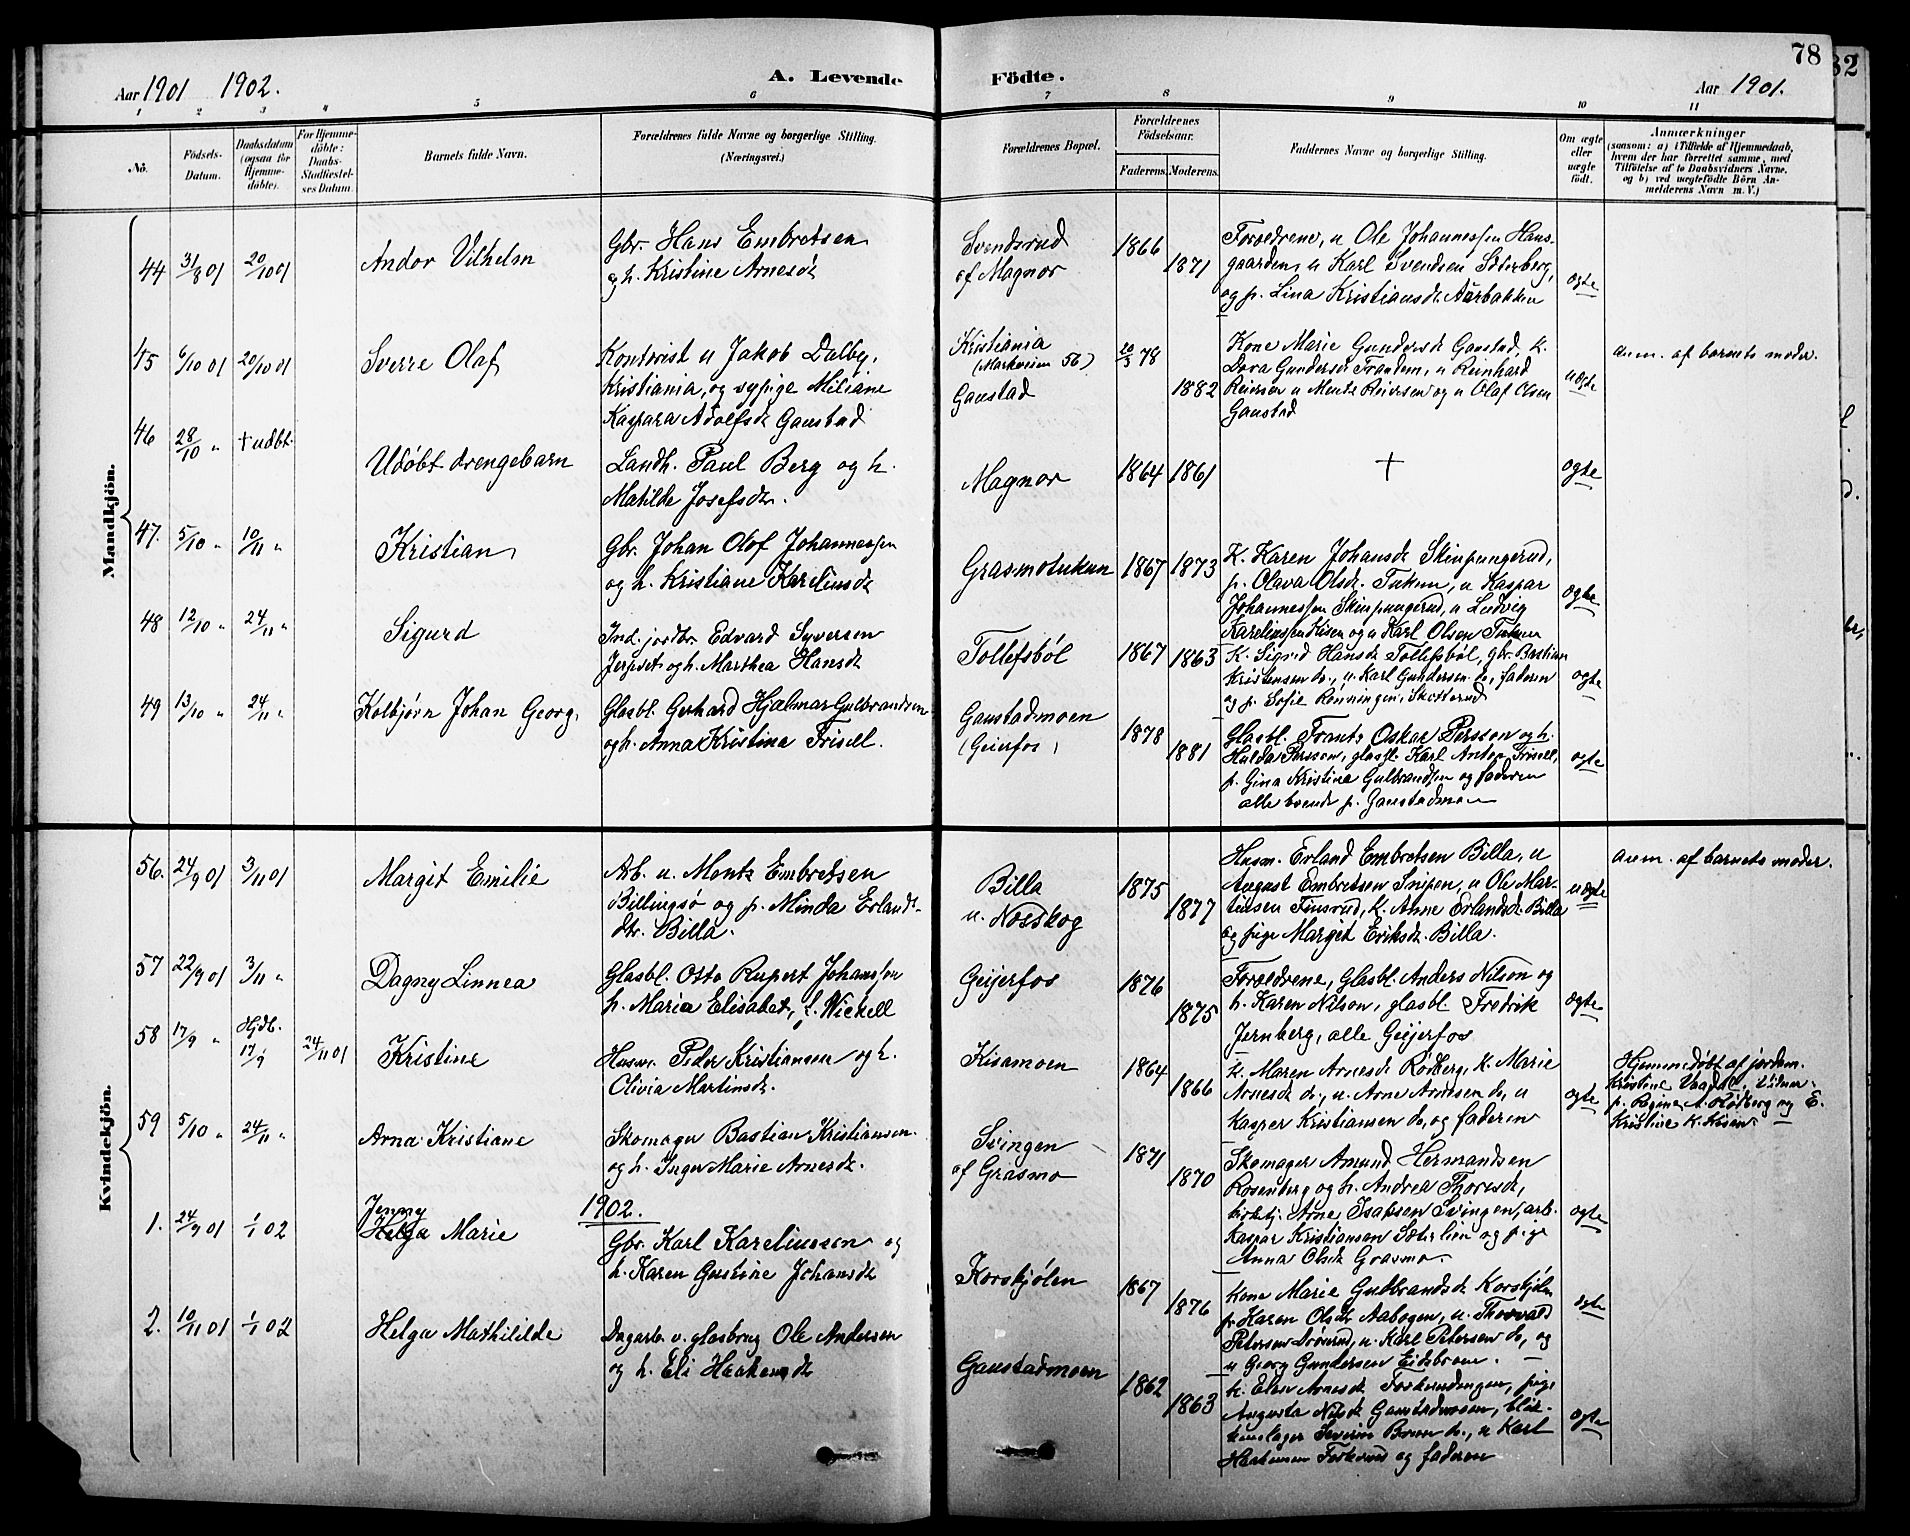 78
82
Aar 1901 1902.
A. Levende Födte.
Aar 1901.
1 2 3 4 5 6 7 8 9 10 11
No.
Födsels-
Datum.
Daabsdatum
(ogsaa for
Hjemme-
döbte).
For Hjemme-
döbte:
Daabs-
Stadfæstel-
ses Datum.
Barnets fulde Navn.
Forældrenes fulde Navne og borgerlige Stilling.
(Næringsvei.)
Forældrenes Bopæl.
Forældrenes
Födselsaar.
Faderens. Moderens.
Faddernes Navne og borgerlige Stilling.
Om ægte
eller
uægte
født.
Anmærkninger
(saasom: a) i Tilfælde af Hjemmedaab,
hvem der har forrettet samme, med
Tilföielse af to Daabsvidners Navne.
og b) ved uægtefödte Börn An-
melderens Navn m. V.)
Mandkjön.
44 31/8 01 20/10 01
Andor Vilhelm
Gbr. Hans Embretsen
og h. Kristine Arnesdt
Svendsrud
af Magnor
1866
1871
Forældrene, u Ole Johannessen Hans-
gaarden, u Karl Svendsen Sæterberg,
og p. Lina Kristiansdt. Aurbakken
ægte
45 6/10 01 20/10 01
Sverre Olaf
Kontorist u Jakob Dalby,
Kristiania, og sypige Miliane
Kaspara Adolfsdt Gaustad
Kristiania
(Markveien 56)
Gaustad
20/3 78
1882
Kone Marie Gundersdt Gaustad, k.
Dora Gundersdt Trandem, u Reinhard
Reiersen u Mentz Reiersen og u Olaf Olsen
Gaustad
uægte
anm. af barnets moder.
46 28/10 " + udbt.
Udøbt drengebarn
Landh. Paul Berg og h.
Matilde Josefsdt.
Magnor
1864 1861
+
ægte
47. 5/10 " 10/11 "
Kristian
Gbr. Johan Olof Johannessen
og h. Kristiane Kareliusdt
Grasmotukun
1867 1873
K. Karen Johansdt Skinpungerud,
p. Olava Olsdt. Tukun, u Kaspar
Johannessen Skinpungerud, u Ludvig
Kareliussen Kisen og u Karl Olsen Tukun
ægte
48 12/10 " 24/11 "
Sigurd
Ind. jordbr. Edvard Syversen
Jerpset og h. Marthea Hansdt
Tollefsböl
1867 1863
K. Sigrid Hansdt Tollefsböl, gbr. Bastian
Kristensen do., u. Karl Gundersen do., faderen
og p. Sofie Rønningen, Skotterud
ægte
49 13/10 " 24/11 "
Kolbjörn Johan Georg.
Glasbl. Gerhard Hjalmar Gulbrandsen
og h. Anna Kristina Frisell.
Gaustadmoen
(Geierfos)
1878
1881
Glasbl. Frants Oskar Persson og h.
Hulda Persson, glasbl. Karl Anton Frisell,
p. Gina Kristina Gulbrandsen og faderen
alle boende p. Gaustadmoen
ægte
Kvindekjön.
56. 24/9 01 3/11 01
Margit Emilie
Arb. u. Mentz Embretsen
Billingsø og p. Minda Erlands-
dtr. Billa.
Billa
u. Nordskog
1875
1877
Husm. Erland Embretsen Billa, u
August Embretsen Snipen, u Ole Mar-
tinsen Finsrud, k. Anne Erlandsdt. Billa
og pige Margit Eriksdt. Billa.
uægte
anm. af barnets moder.
57 22/9 01 3/11 "
Dagny Linnea
Glasbl. Otto Rupert Johansson
h. Maria Elisabet, f. Wickell
Geijerfos
1876
1875
Forældrene, Glasbl. Anders Nilson og
h. Karen Nilson, glasbl. Fredrik
Jernberg, alle Geijerfos
ægte
58 17/9 " Hjdb. 17/9 24/11 01
Kristine
Husm. Peder Kristiansen og h.
Olivia Martinsdt.
Kisamoen
1864
1866
K. Maren Arnesdt Rödberg, k. Marie
Arnesdt do., u. Arne Arnesen do, u
Kasper Kristiansen do, og faderen
ægte
Hjemmedøbt af jordm.
Kristine
p. Regine A. Rödberg og E.
Kristine K. Kisen.
59 5/10 " 24/11 "
Arna Kristiane
Skomager Bastian Kristiansen
og h. Inger Marie Arnesdt.
Svingen
af Grasmo
1871
1870
Skomager Amund Hermandsen
Rosenberg og h. Andrea Thoresdt,
kirketj. Arne Isaksen Svingen, arb.
Kaspar Kristiansen Sæterlien og pige
Anna Olsdt Grasmo.
ægte
1902.
1. 24/9 01 1/1 02
Jenny
Helga Marie
Gbr. Karl Kareliussen og
h. Karen Gustine Johansdt
Korskjølen
1867
1876
Kone Marie Gulbrandsdt Korskjølen
p. Karen Olsdt Aabogen, u. Thorvald
Petersen Drösrud, u. Karl Petersen do, og
u Georg Gundersen Eidsbroen.
ægte
2. 10/11 01 1/1 02
Helga Mathililde
Dagarb. v. glasbrug Ole Andersen
og h. Eli Haakensdt
Gaustadmoen
1862
1863
K. Elen Arnesdt Foskerudengen, pige
Augusta Nilsdt Gaustadmoen, blik-
kenslager Severin Broen do., u Karl
Haakensen Foskerud og faderen
ægte